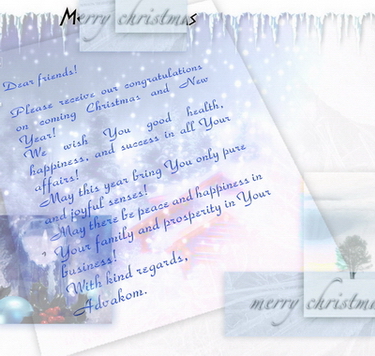 Merry christmas
Dear friends!
Please receive our congratulations
on coming Christmas and New
Year!
We wish You good health,
happiness, and success in all Your
affairs!
May this year bring You only pure
and joyful senses!
May there be peace and happiness in
Your family and prosperity in Your
business!
With kind regards,
Advakom.
merry christmas